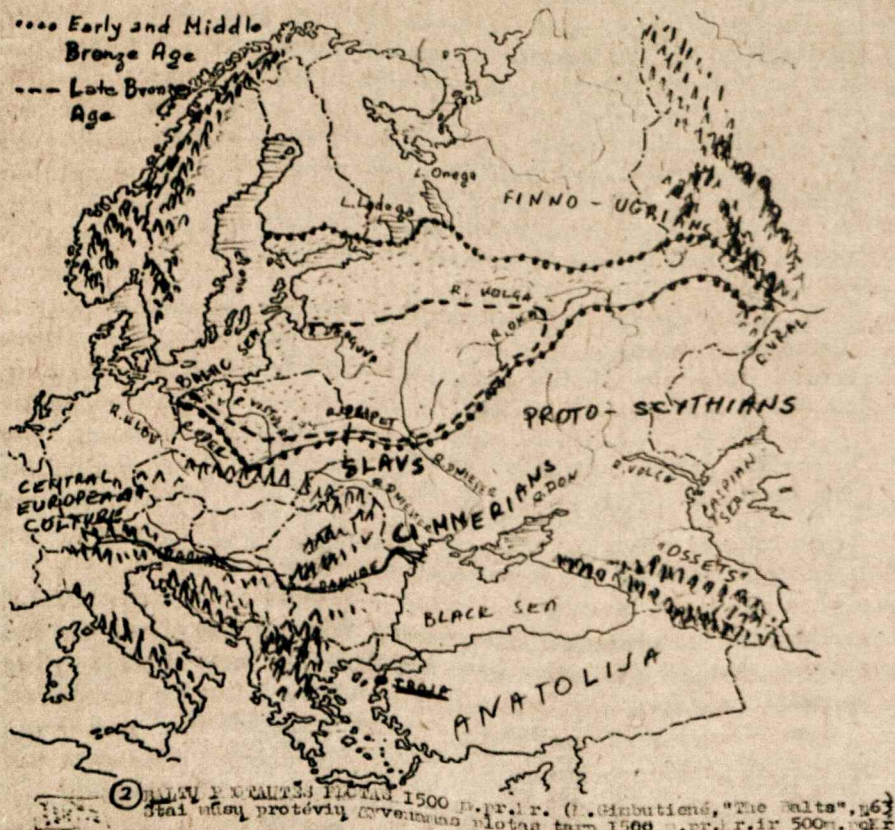 Early and Middle
Bronze Age
Late Bronze
Age
L. Onega
L. Ladoga
FINNO - UGRIANS
R. VOLGA
R. OKA
R. URAL
BALTIC SEA
R. VISTULA
R. PRIPET
R. ODER
PROTO - SCYTHIANS
SLAVS
R. DNIEPER
R. DNIESTER
R. DON
R. VOLGA
CASPIAN
SEA
CENTRAL
EUROPEAN
CULTURE
CIMMERIANS
"OSSETS"
DANUBE
DANUBE
BLACK SEA
TROJA
ANATOLIJA
2 BALTŲ PROTAUTĖS PLOTAS 1500 m.pr.Kr. (M.Gimbutienė, "The Balts", p63
Štai mūsų protėvių gyvenamas plotas tarp 1500 m.pr.Kr.ir 500m.